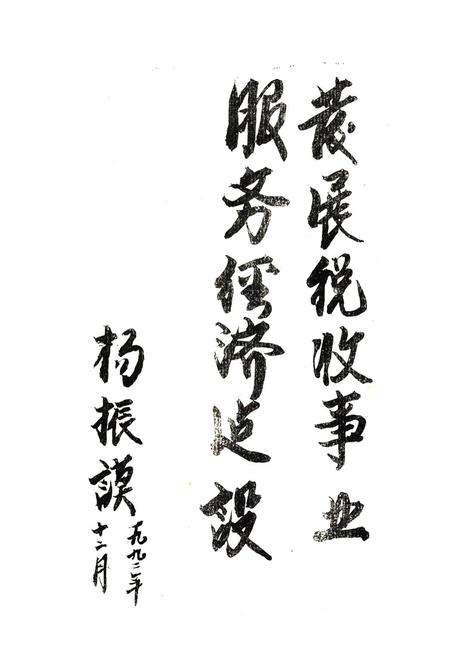 發展税收事业
服务經济建設
杨振謨
一九九二年
十二月